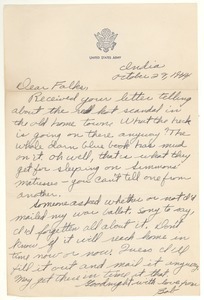 UNITED STATES ARMY
India
October 27, 1944
Dear Folks,
Received your letter telling
about the red hot scandal in
the old home town. What the heck
is going on there anyway? The
whole darn blue book has mud
on it. Oh well, that is what they
get for sleeping on Simmons'
matresses - you can't tell one from
another.
Someone asked whether or not I'd
mailed my war ballot. Sorry to say,
I'd forgotten all about it. Don't
know if it will reach home in
time now or not. Guess I'll
fill it out and mail it anyway.
My pot these to that.
Goodnight with love from
Bob